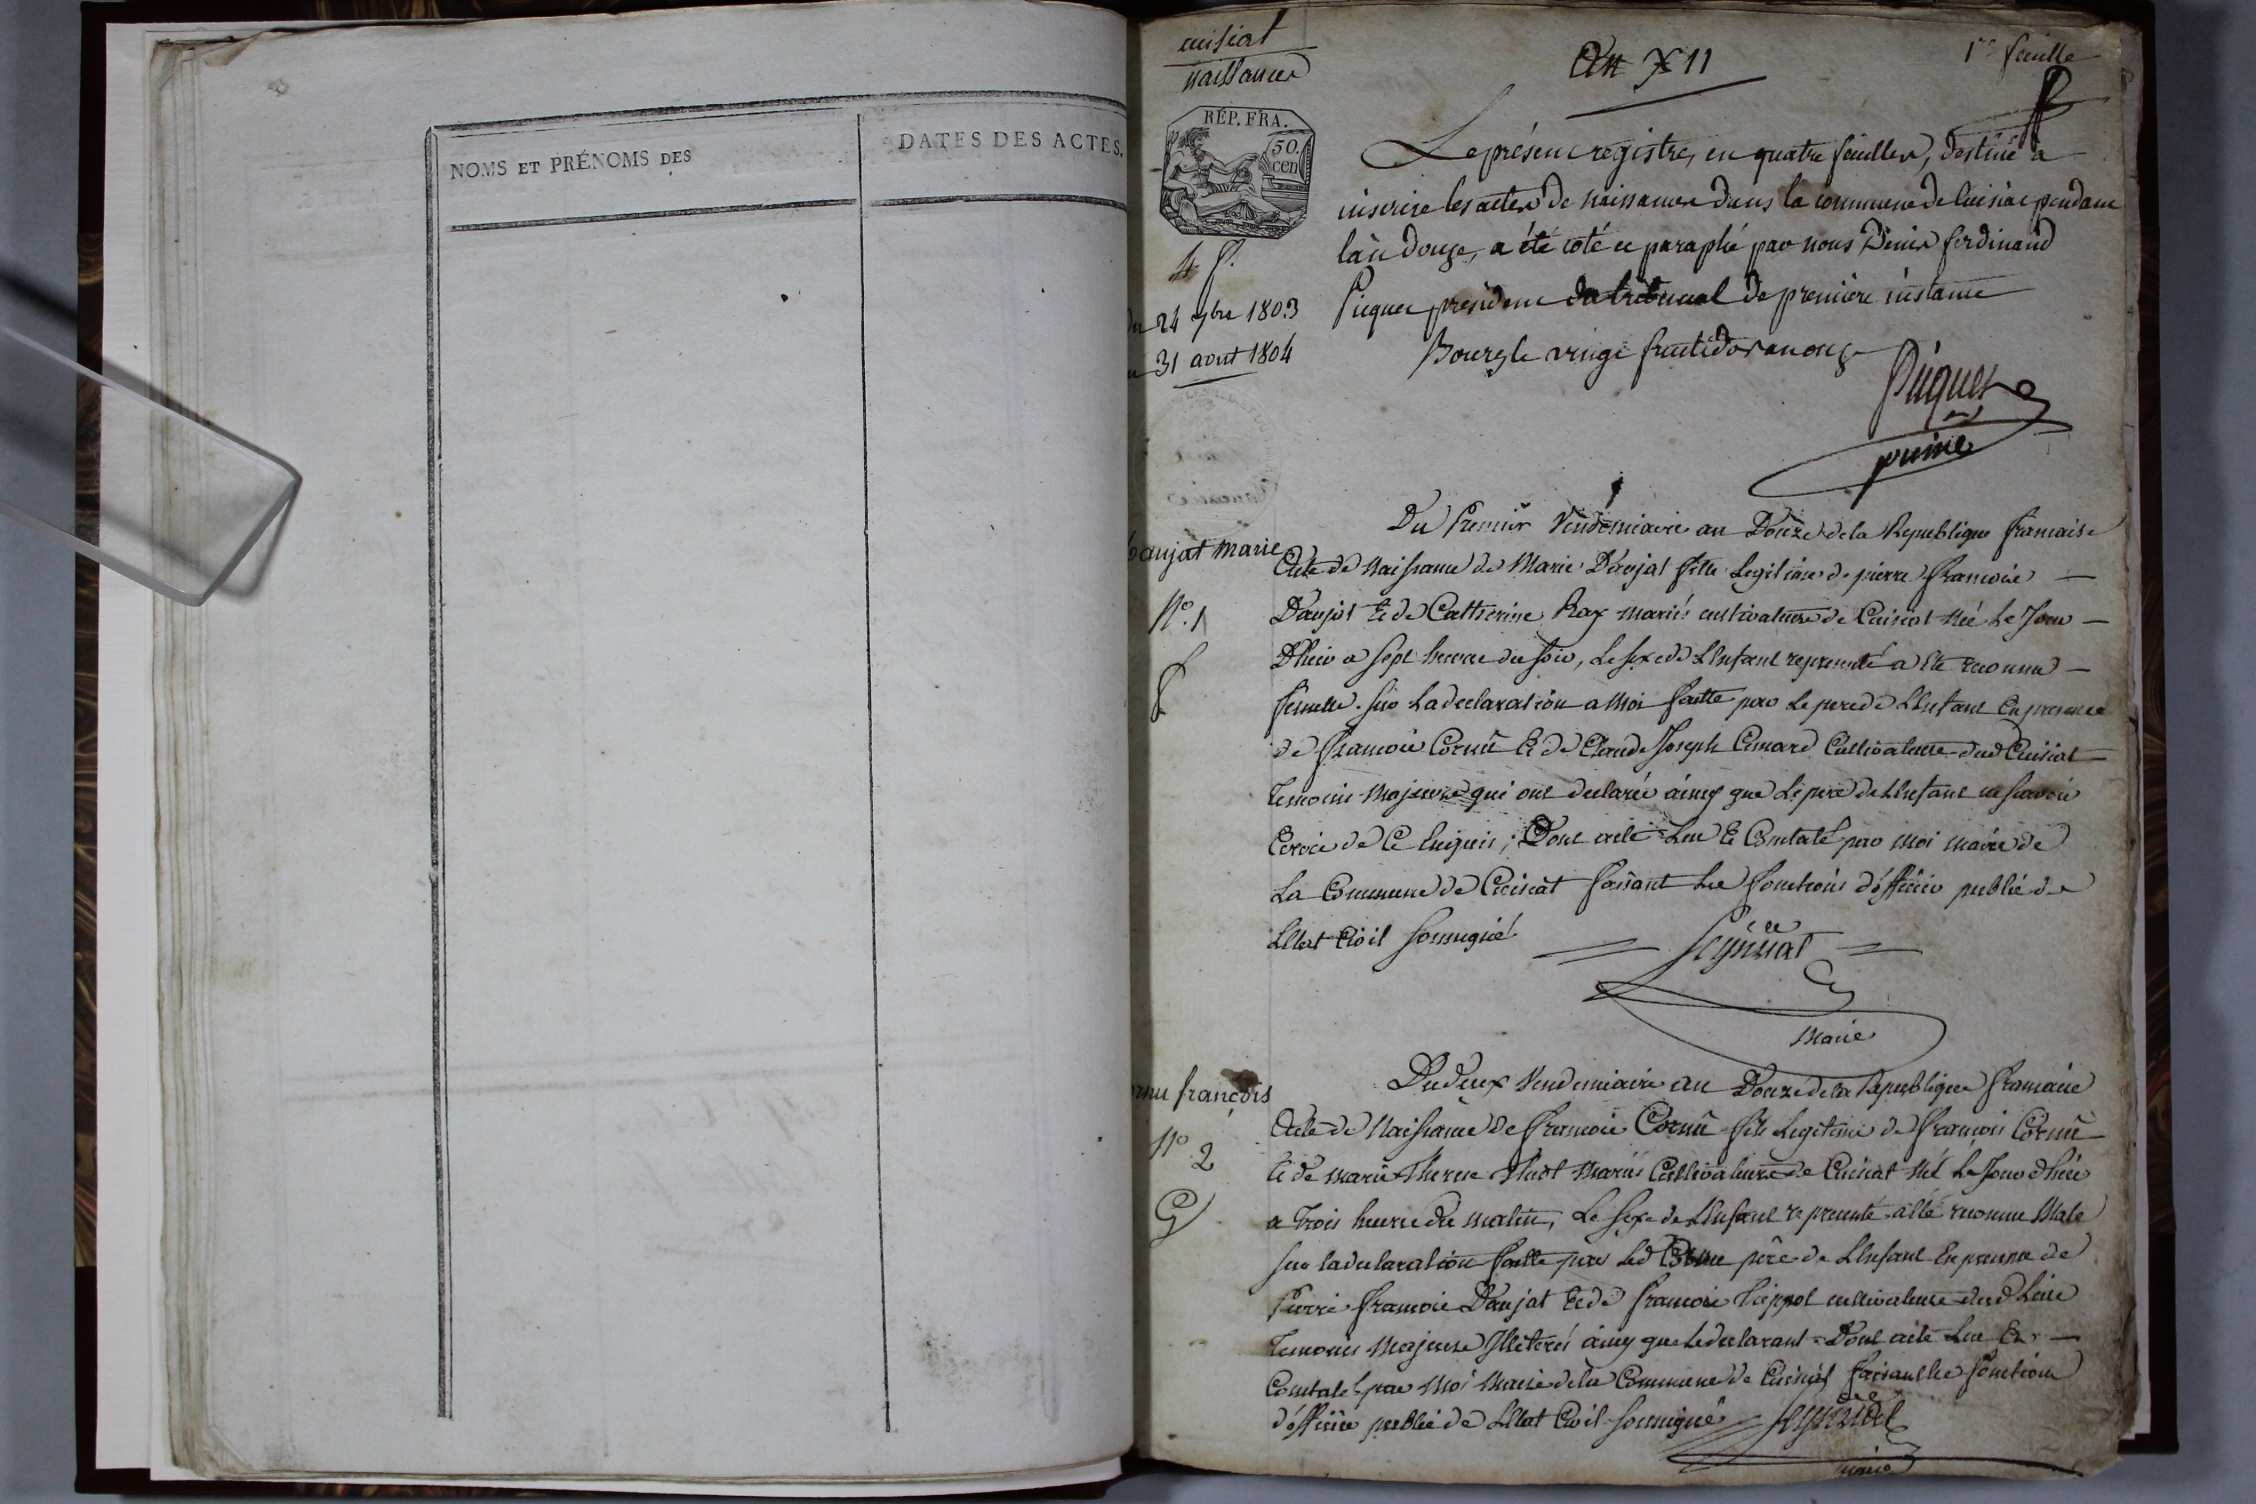 NOMS ET PRÉNOMS DES
DATES DES ACTES.
cuisiat
naissances
An XII
1re feuille
RÉP. FRA.
50. cen
4 f.
du 24 7bre 1803
31 aout 1804
Le présent registre, en quatre feuilles, destiné a
inscrire les actes de naissances dans la commune de Cuisiat pendant
l'an douze, a été coté et paraphé par nous Denis ferdinand
Picquet president du tribunal de premiere instance
Bourg le vingt fructidor an onze
Picquet
Daujat marie
N°. 1
Du Premier Vendémiaire an Douze de la Republique francaise
Acte de Naissance de Marie Daujat fille Legitime de pierre francois
Daujat Et de Catherine Ray mariés cultivateurs de Cuisiat Née Le Jour
D'hier a sept heures du soir, Le sexe de L'Enfant representé a Eté reconnu
femelle. sur La declaration a Moi faitte par Le pere de L'Enfant En presence
de francois Cornu Et de Claude Joseph Cmard Cultivateurs dud Cuisiat
Temoins Majeurs qui ont declarés ainsy que Le pere de L'Enfant ne scavoir
Ecrire de Ce Enquis; Dont acte Lu Et Constaté par Moi maire de
La Commune de Cuisiat faisant Les fonctions d'officier public de
L'Etat Civil soussigné
Maire
Cornu françois
N° 2
Du deux Vendemiaire an Douze de la Republique francaise
Acte de Naissance de francois Cornu fils Legitime de francois Cornu
Et de marie Therese Mariés Cultivateurs de Cuisiat Né Le Jour d'hier
a Trois heures du matin, Le sexe de L'Enfant representé a Eté reconnu Male
sur la declaration faitte par Led Cornu père de L'Enfant En presence de
Pierre francois Daujat Et de francois cultivateurs dud Lieu
Temoins Majeurs Illeterés ainsy que Le declarant Dont acte Lu Et
Constaté par Moi Maire de la Commune de Cuisiat faisant Les fonctions
d'officier public de L'Etat Civil soussigné
maire